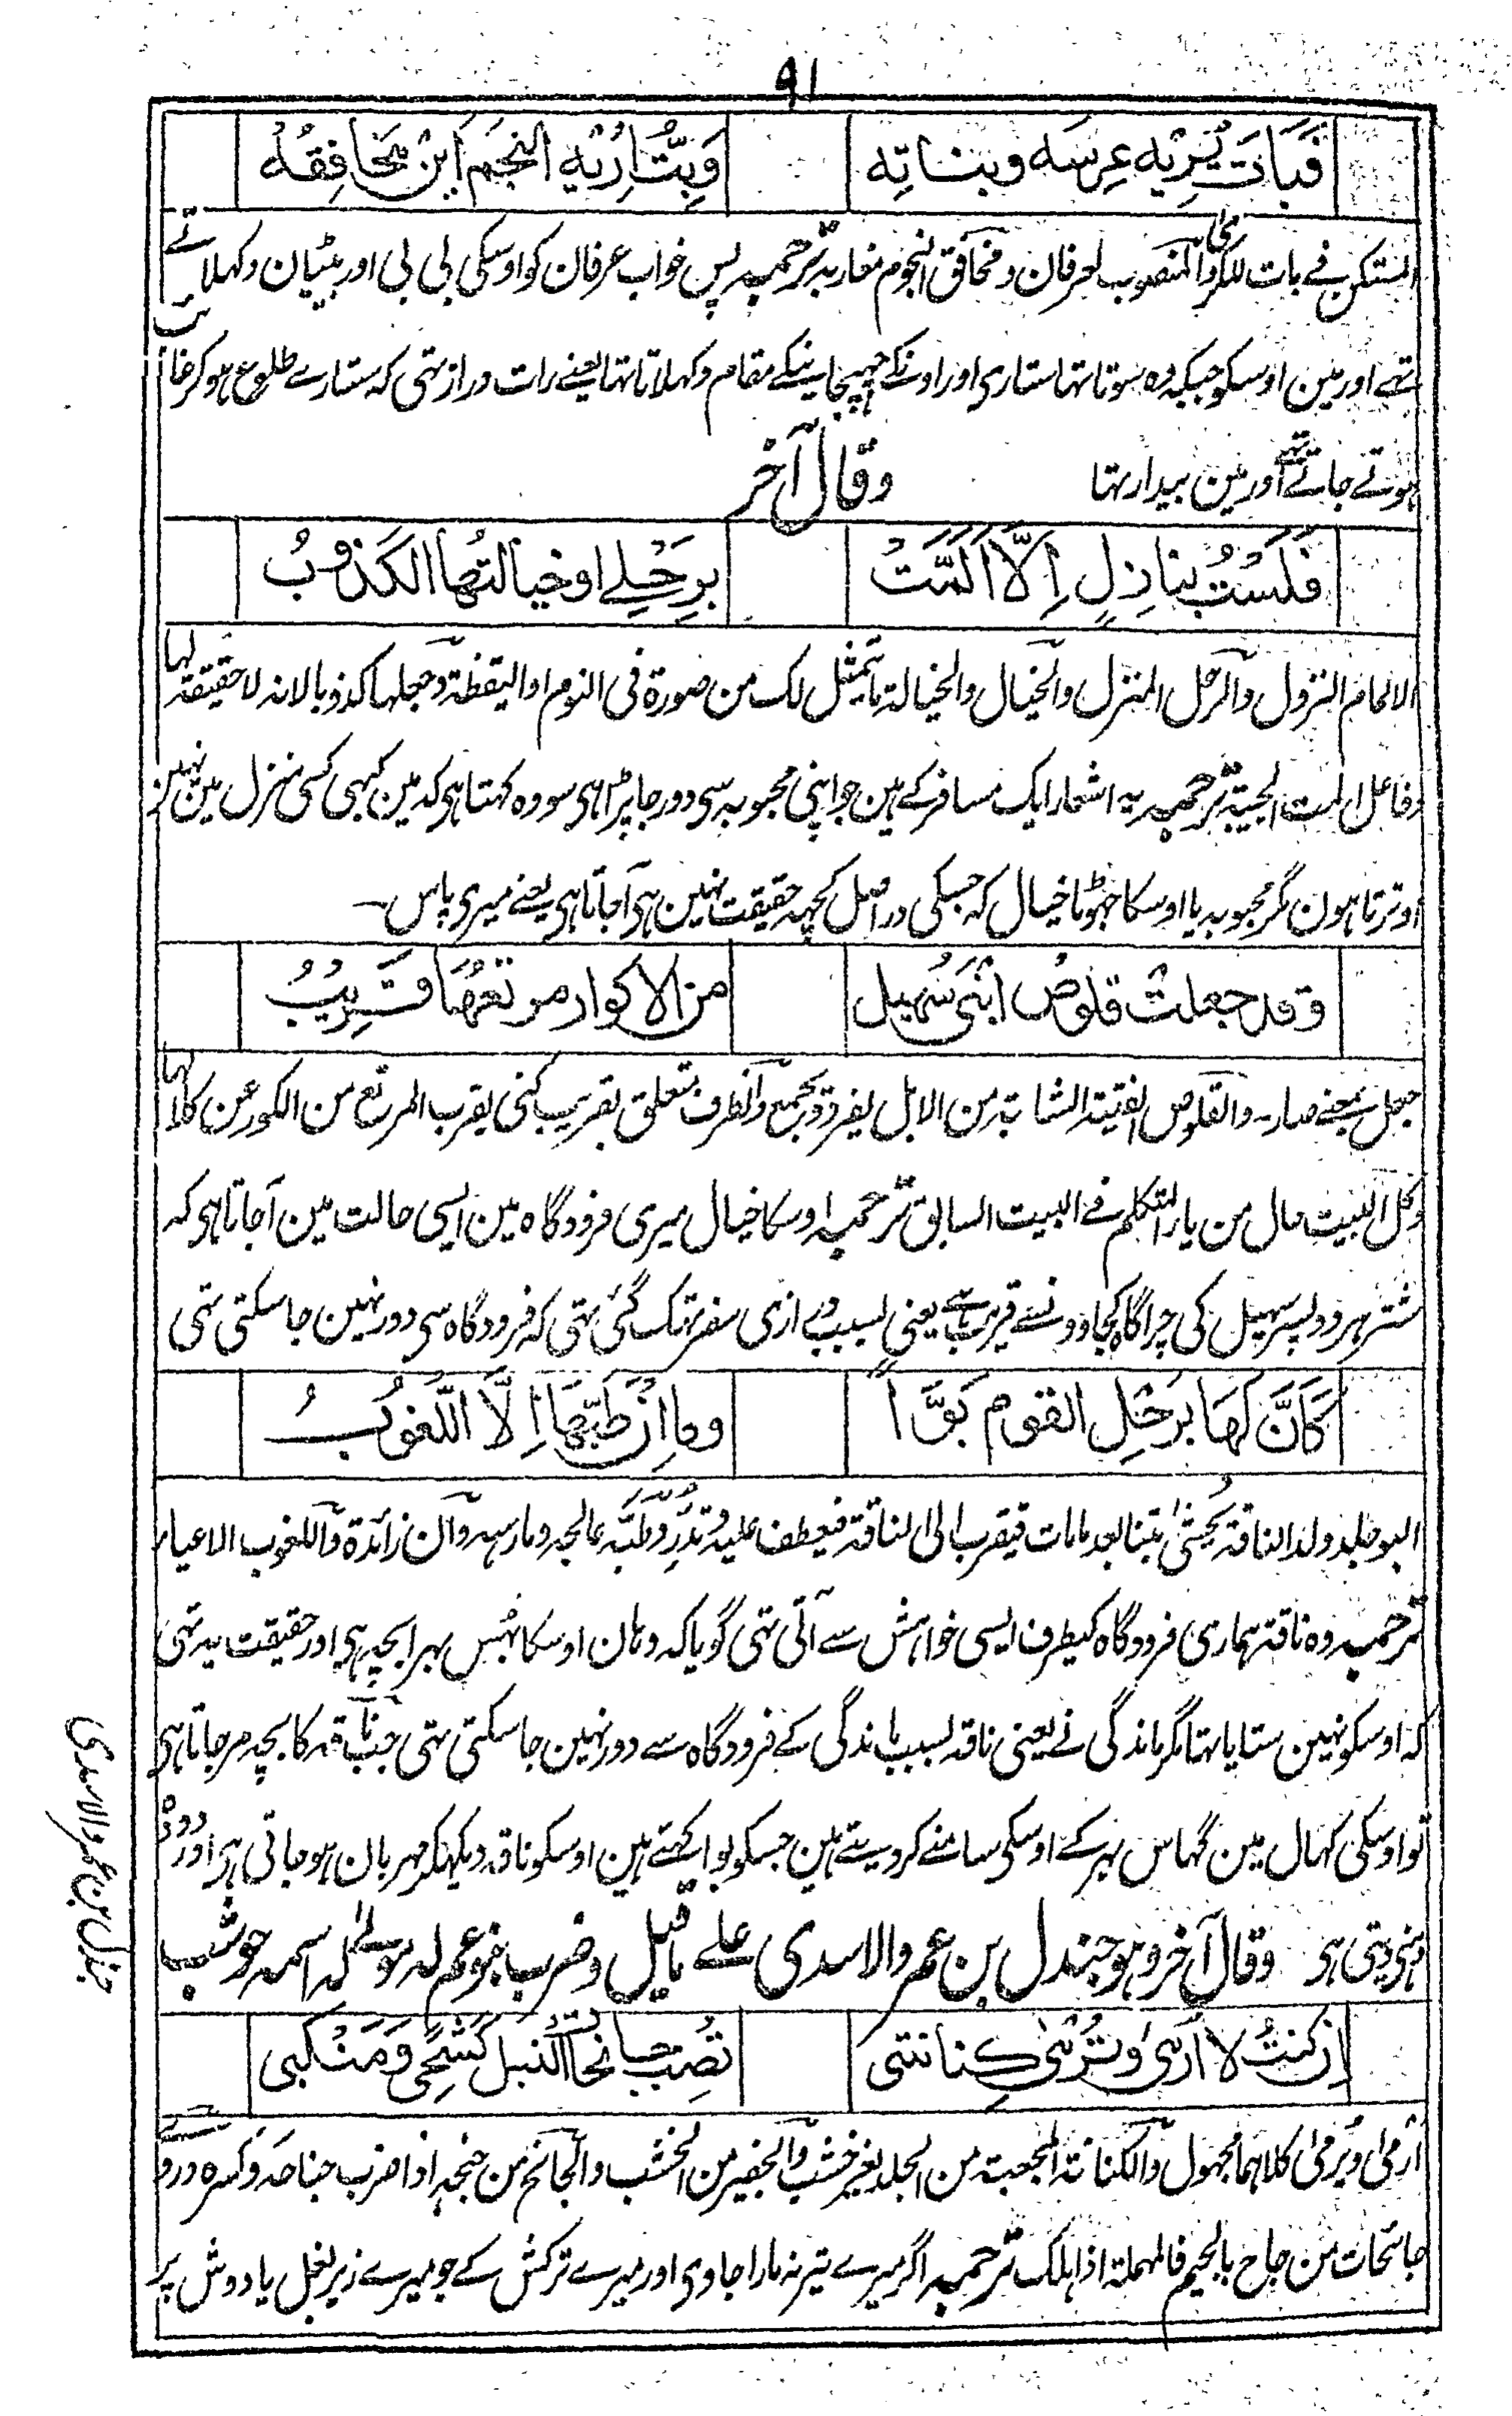 ۹۱
فَبَاتَ يُرِيْهِ عِرسَه وبناتِه وَبِتُّ اُرِيْهِ النجمَ اَيْنَ مَخَافِقُهُ
المستكن فے بات للكرىٰ والمنصوب لعرفان ومخافق النجوم مغاربہ ترجمہ پس خواب عرفان کو اوسکی بی بی اور بیٹیان دکہلاتے
تہے اور مین اوسکو جبکہ وہ سوتا تہا ستاری اور اونکے چہپ جاینکے مقام دکہلاتا تہا یعنے رات دراز تہی کہ ستارے طلوع ہو کر غائب
ہوتے جاتے تہے اور مین بیدار تہا وقال آخر
فلَسْتُ بنازِلٍ اِلَّا اَلَمَّتْ بِرَحْلِے اوخيالتُها الكَذُوبُ
الالمام النزول والرحل المنزل والخيال والخيالة ما يتمثل لك من صورة فى النوم او اليقظة وجعلها كذوبا لانه لا حقيقة لها
وفاعل المت الحبيبة ترجمہ یہ اشعار ایک مسافر کے ہین جو اپنی محبوبہ سی دور جا پڑا ہی سو وہ کہتا ہی کہ مین کبہی کسی منزل مین نہین
اوترتا ہون مگر محبوبہ یا اوسکا جہوٹا خیال کہ جسکی در اصل کچہہ حقیقت نہین ہی آجاتا ہی یعنے میری پاس
وقد جعلتْ قلوصُ ابْنَىْ سُهَيلٍ من الاكوار مرتعُهَا قَرِيْبُ
جعل بمعنے صار والقلوص الفتية الشابة من الابل يفرد ويجمع والظرف متعلق بقريب كنى بقرب المرتع من الكور عن كلالها
وكل البيت حال من ياء المتكلم فے البيت السابق ترجمہ اوسکا خیال میری فرودگاہ مین ایسی حالت مین آجاتا ہی کہ
شتر ہر دو پسر سہیل کی چراگاہ کجاوونسے قریب ہے یعنی بسبب درازی سفر تہک گئی تہی کہ فرودگاہ سی دور نہین جا سکتی تہی
كَاَنَّ لَهَا بِرَحْلِ القوم بَوًّا وما اِنْ طَبَّهَا اِلَّا اللُّغُوبُ
البو جلد ولد الناقة يُحشىٰ تبنا بعد ما مات فيقرب الى الناقة فيعطف عليه وتدر وطبّه عالجه ومارسه وان زائدة واللغوب الاعياء
ترجمہ وہ ناقہ ہماری فرودگاہ کیطرف ایسی خواہش سے آتی تہی گویا کہ وہان اوسکا بہس بہرا بچہ ہی اور حقیقت یہ تہی
کہ اوسکو نہین ستایا تہا مگر ماندگی نے یعنی ناقہ بسبب ماندگی کے فرودگاہ سے دور نہین جا سکتی تہی جب ناقہ کا بچہ مر جاتا ہی
تو اوسکی کہال مین گہاس بہر کے اوسکی سامنے کر دیتے ہین جسکو بوا کہتے ہین اوسکو ناقہ دیکہکر مہربان ہو جاتی ہی اور دودہ
دینی دیتی ہی وقال آخر وہو جندل بن عمرو الاسدی علے ماقیل وضرب بنو عمہ لہ مولےٰ لہ اسمہ حوشب
اِنْ كنتُ لا اُرْمىٰ وتُرْمىٰ كِنانتى تُصِبْ جانحاتُ النبلِ كَشحِى وَمَنْكبى
اُرمىٰ ويُرمىٰ كلاهما مجهول والكنانة الجعبة من الجلد بغير خشب والجفير من الخشب والجانح من جنحه اذا ضرب جناحه وكسره
جائحات من جاح بالجيم فالمهملة اذا هلك ترجمہ اگر میرے تیر نہ مارا جاوی اور میرے ترکش کے جو میرے زیر بغل یا دوش پر
جندل بن عمرو الاسدی